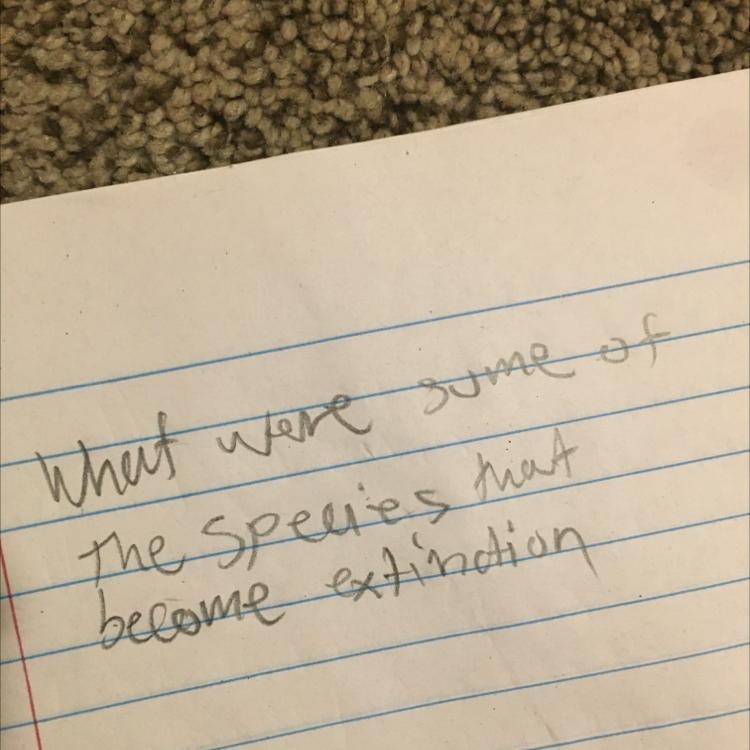 What were some of
the species that
become extinction